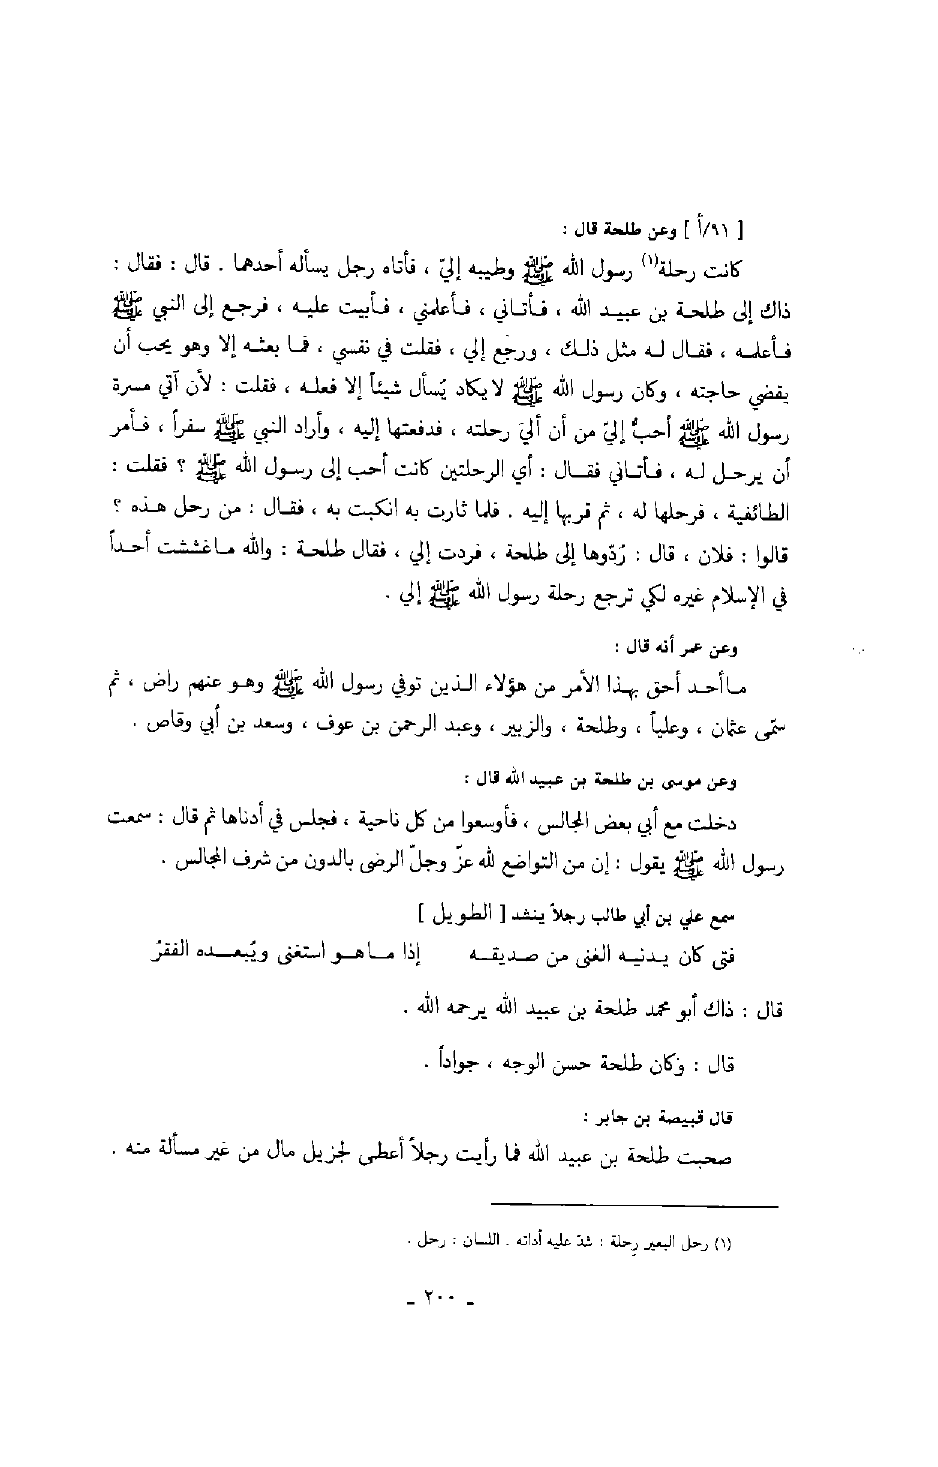 [ ٩١/أ ] وعن طلحة قال :
كانت رحلة(١) رسول الله ﷺ وطيبه إليّ ، فأتاه رجل يسأله أحدهما . قال : فقال :
ذاك إلى طلحة بن عبيد الله ، فأتاني ، فأعلمني ، فأبيت عليه ، فرجع إلى النبي ﷺ
فأعلمه ، فقال له مثل ذلك ، ورجع إلي ، فقلت في نفسي ، فما بعثه إلا وهو يحب أن
يقضي حاجته ، وكان رسول الله ﷺ لا يكاد يُسأل شيئاً إلا فعله ، فقلت : لأن آتي مسرة
رسول الله ﷺ أحبُّ إليّ من أن أليَ رحلته ، فدفعتها إليه ، وأراد النبي ﷺ سفراً ، فأمر
أن يرحل له ، فأتاني فقال : أي الرحلتين كانت أحب إلى رسول الله ﷺ ؟ فقلت :
الطائفية ، فرحلها له ، ثم قربها إليه . فلما ثارت به انكبت به ، فقال : من رحل هذه ؟
قالوا : فلان ، قال : رُدّوها إلى طلحة ، فردت إلي ، فقال طلحة : والله ما غششت أحداً
في الإسلام غيره لكي ترجع رحلة رسول الله ﷺ إلي .
وعن عمر أنه قال :
ما أحد أحق بهذا الأمر من هؤلاء الذين توفي رسول الله ﷺ وهو عنهم راض ، ثم
سمّى عثمان ، وعلياً ، وطلحة ، والزبير ، وعبد الرحمن بن عوف ، وسعد بن أبي وقاص .
وعن موسى بن طلحة بن عبيد الله قال :
دخلت مع أبي بعض المجالس ، فأوسعوا من كل ناحية ، فجلس في أدناها ثم قال : سمعت
رسول الله ﷺ يقول : إن من التواضع لله عزّ وجلّ الرضى بالدون من شرف المجالس .
سمع علي بن أبي طالب رجلاً ينشد [ الطويل ]
فتى كان يدنيه الغنى من صديقه إذا ما هو استغنى ويُبعده الفقرُ
قال : ذاك أبو محمد طلحة بن عبيد الله يرحمه الله .
قال : وكان طلحة حسن الوجه ، جواداً .
قال قبيصة بن جابر :
صحبت طلحة بن عبيد الله فما رأيت رجلاً أعطى لجزيل مال من غير مسألة منه .
(١) رحل البعير رِحلة : شدّ عليه أداته . اللسان : رحل .
ـ ٢٠٠ ـ